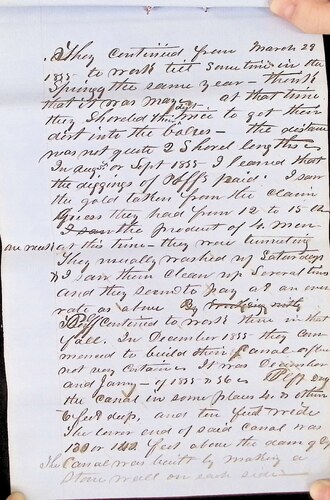 They Continued from March 29
1855 to work till sometime in the
Spring the same year — think
that it was May — at that time
they Shoveled this to get their
dirt into the boxes — the distance
was not quite 2 Shovel lengths
In Augt or Sept 1855 — I learned that
the diggings of Poff's paid. I saw
the gold taken from the claim
Guess they had from 12 to 15
I saw the product of 4 men
one week at this time — they were tunneling
They usually washed up Saturdays
& I saw them Clean up Several times
and they seemed to pay at an even
rate as above
Poff Continued to work there in that
fall. In December 1855 they Com-
menced to build their Canal after
not very certain it was December
and Jany — of 1855 & 56 — Poff dug
the Canal in some places 4 & others
6 feet deep, and ten feet wide
The lower end of said Canal was
130 or 140 feet above the dam of
The Canal was built by making a
Stone wall on each side